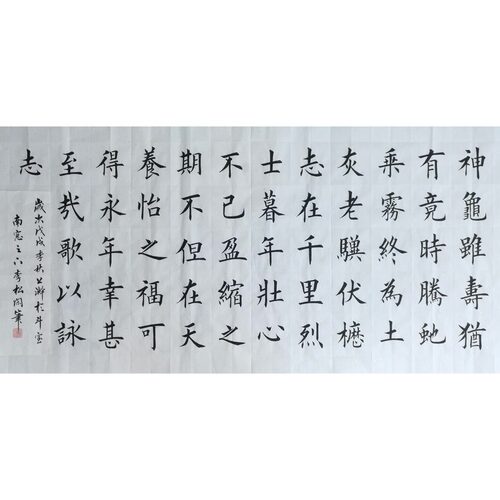 神龜雖壽猶
有竟時騰虵
乗霧終為土
灰老驥伏櫪
志在千里烈
士暮年壯心
不已盈縮之
期不但在天
養怡之福可
得永年幸甚
至哉歌以詠
志
歲次戊戌季秋上澣於斗室
南窓之下李松筆